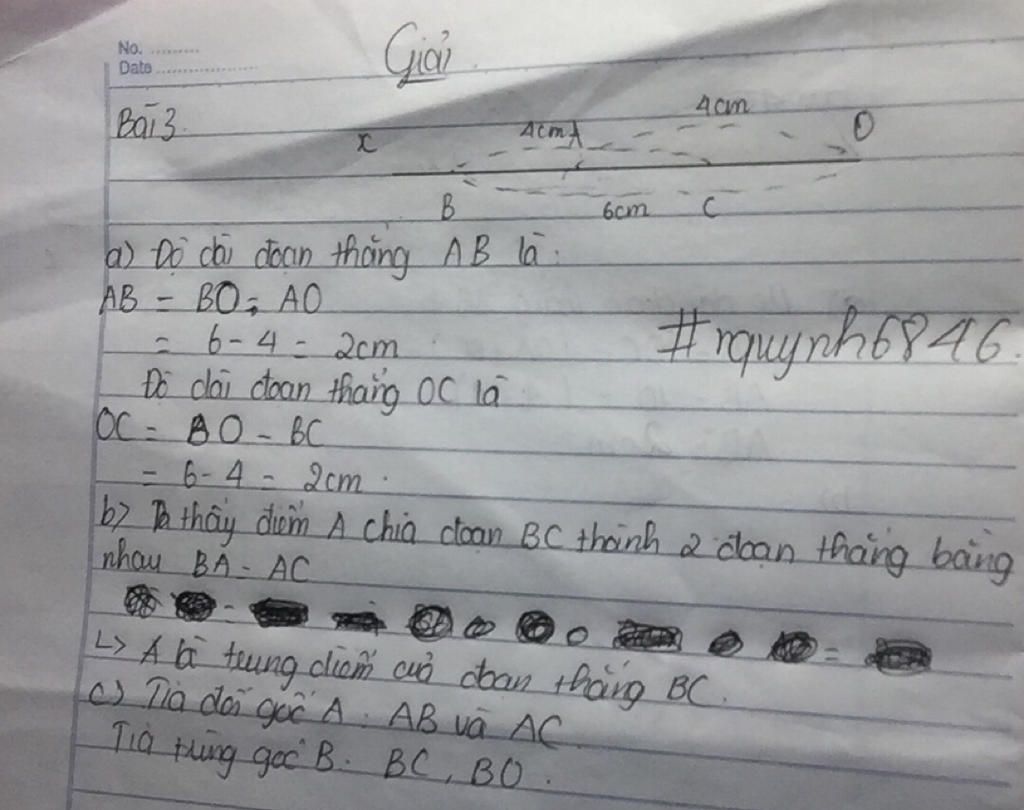 No. ..........
Date ....................
Giải
Bài 3.
x 4cm A 4cm O
B 6cm C
a) Độ dài đoạn thẳng AB là:
AB = BO - AO
= 6 - 4 = 2cm
#nquynh6846.
Độ dài đoạn thẳng OC là
OC = BO - BC
= 6 - 4 = 2cm.
b) Ta thấy điểm A chia đoạn BC thành 2 đoạn thẳng bằng
nhau BA = AC
↳ A là trung điểm của đoạn thẳng BC.
c) Tia đối gốc A: AB và AC.
Tia trùng gốc B: BC, BO.